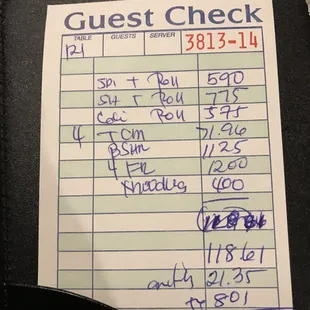 Guest Check
TABLE GUESTS SERVER
121 3813-14
SPI T Roll 590
SH T Roll 775
Cali Roll 575
4 TCM 71.96
BSHR 1125
4 FR 1200
Noodles 400
118.61
21.35
801